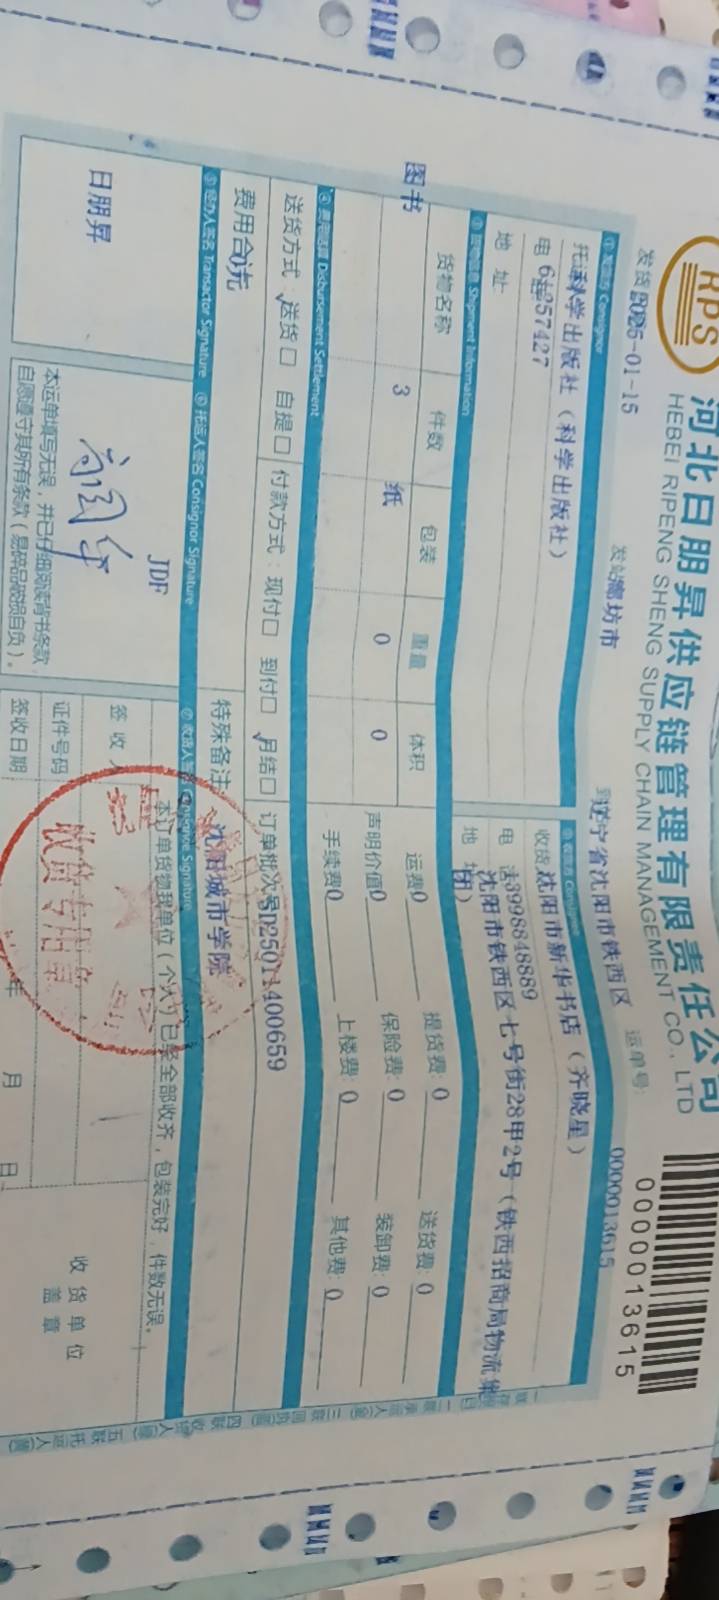 RPS
河北日朋昇供应链管理有限责任公司
HEBEI RIPENG SHENG SUPPLY CHAIN MANAGEMENT CO., LTD
0000013615
发货 2025-01-15 发站 廊坊市 到 辽宁省沈阳市铁西区 运单号: 0000013615
① 发货方 Consignor
② 收货方 Consignee
托运 科学出版社（科学出版社）
收货 沈阳市新华书店（齐晓星）
电 64257427
电 话 13998848889
地 址:
地 址 沈阳市铁西区七号街28甲2号（铁西招商局物流集团）
③ 货物信息 Shipment Information
货物名称 件数 包装 重量 体积
运费 0 提货费: 0 送货费: 0
图书 3 纸 0 0
声明价值 0 保险费: 0 装卸费: 0
手续费 0 上楼费: 0 其他费: 0
④ 费用结算 Disbursement Settlement
送货方式: √送货□ 自提□ 付款方式: 现付□ 到付□ √月结□ 订单批次号 SD25011400659
费用合计 0元
特殊备注 沈阳城市学院
⑤ 经办人签名 Transactor Signature ⑥ 托运人签名 Consignor Signature ⑦ 收货人签名 Consignee Signature
日朋昇
JDF
本订单货物我单位（个人）已经全部收齐，包装完好，件数无误。
签收人
证件号码
签收日期 年 月 日
收货单位
盖章
收货专用章
本运单填写无误，并已仔细阅读背书条款
自愿遵守其所有条款（易碎品破损自负）。